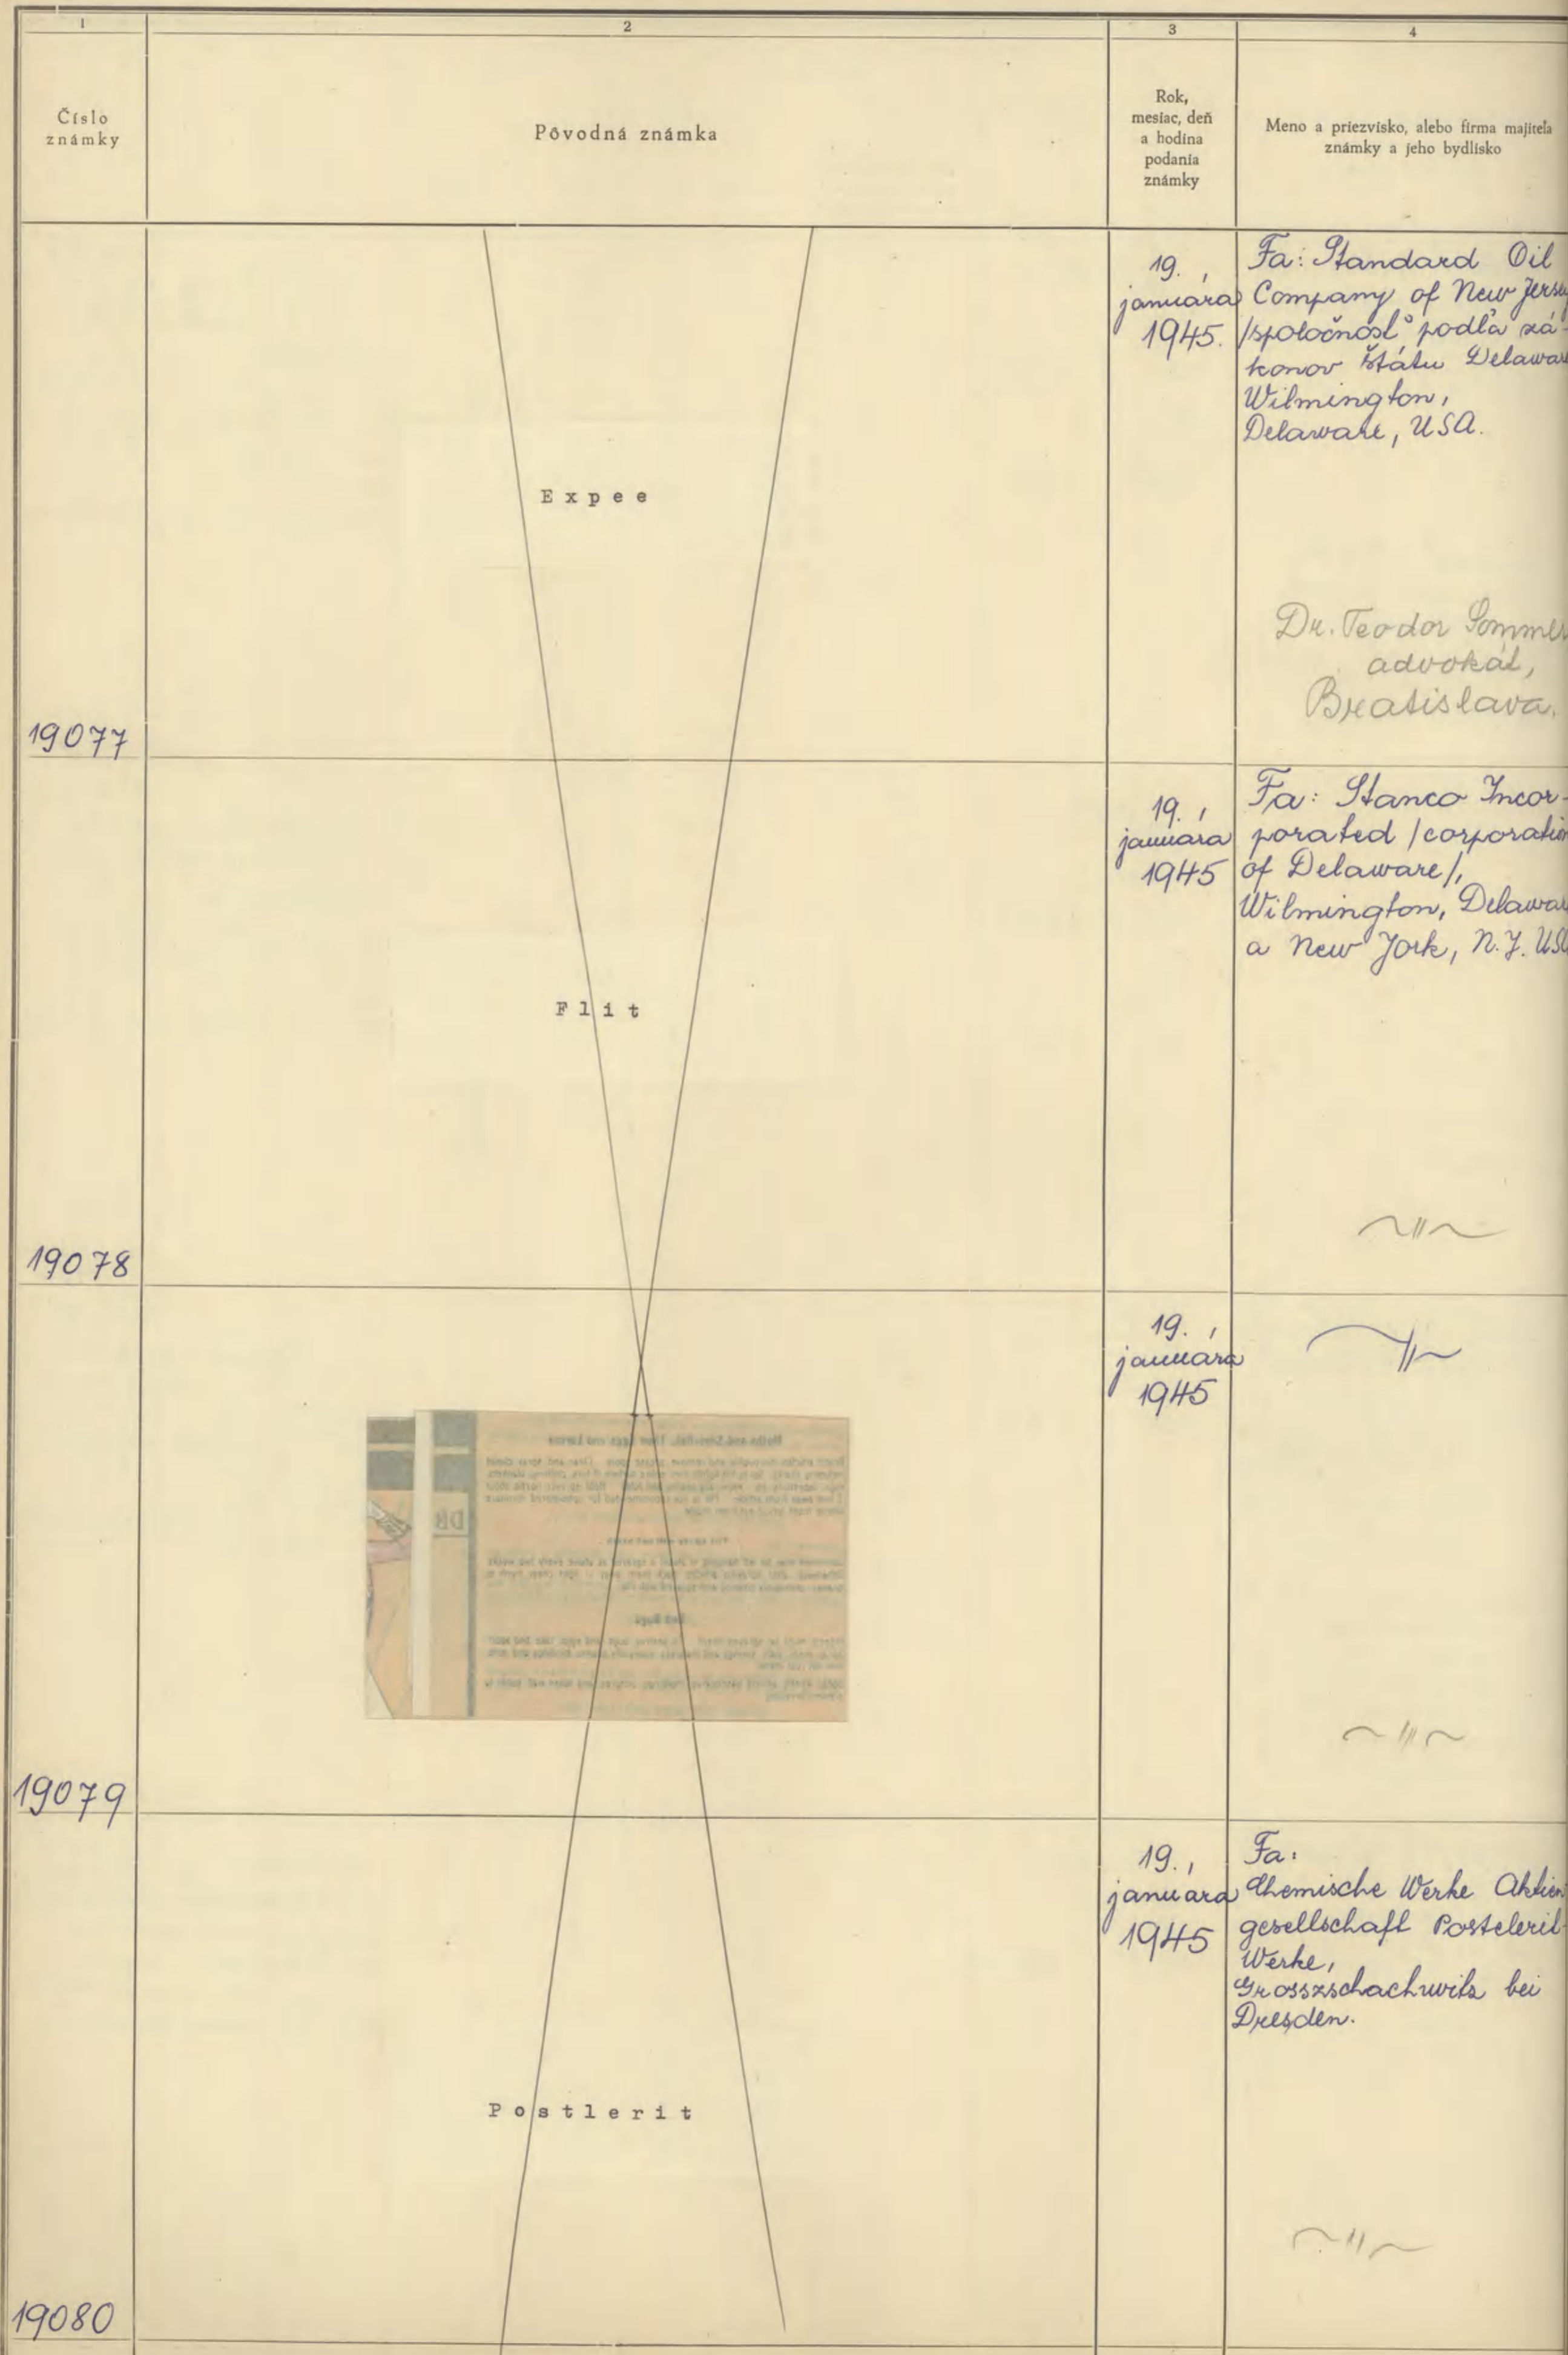 1
2
3
4
Číslo
známky
Pôvodná známka
Rok,
mesiac, deň
a hodina
podania
známky
Meno a priezvisko, alebo firma majiteľa
známky a jeho bydlisko
19077
Expee
19.
januára
1945.
Fa: Standard Oil
Company of New Jersey
/spoločnosť podľa zá-
konov štátu Delaware
Wilmington,
Delaware, USA.
Dr. Teodor Sommer
advokát,
Bratislava.
19078
Flit
19.
januára
1945
Fa: Stanco Incor-
porated /corporation
of Delaware/,
Wilmington, Delaware
a New Jork, N.J. USA
~〃~
19079
19.
januára
1945
~〃~
~〃~
Bed Bugs
19080
Postlerit
19.
januára
1945
Fa:
Chemische Werke Aktien
gesellschaft Postelerit-
Werke,
Grosszschachwitz bei
Dresden.
~〃~